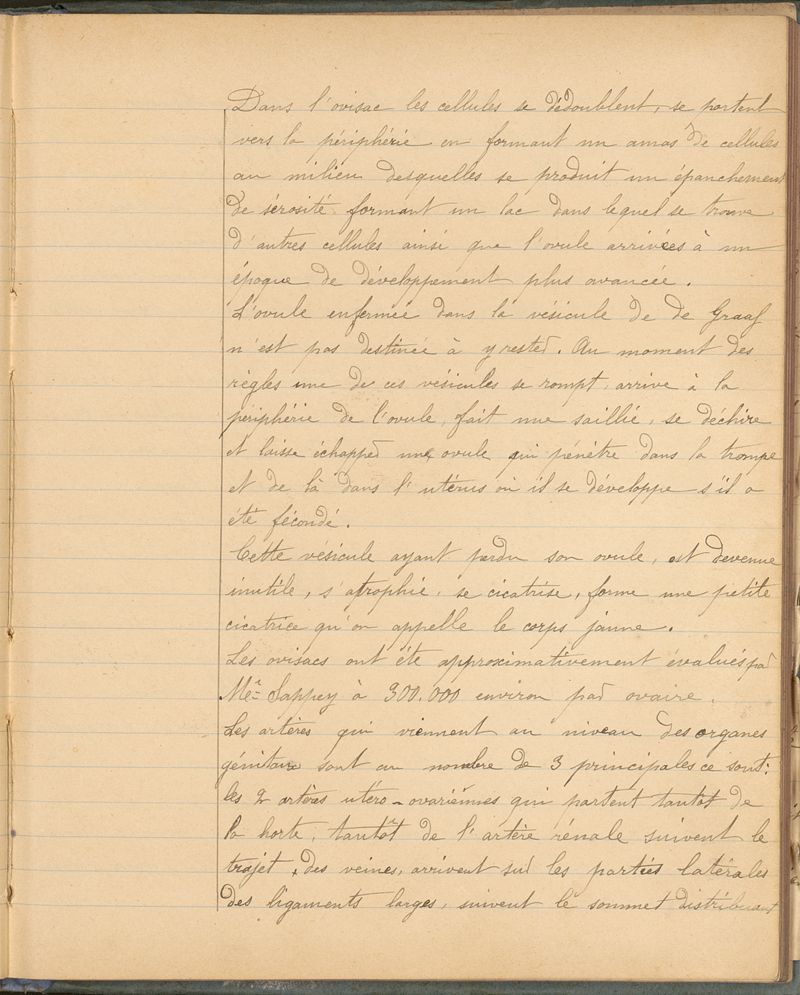 Dans l'ovisac les cellules se dédoublent, se portent
vers la périphérie en formant un amas de cellules
au milieu desquelles se produit un épanchement
de sérosité formant un lac dans lequel se trouve
d'autres cellules ainsi que l'ovule arrivées à un
époque de développement plus avancée.
L'ovule enfermée dans la vésicule de de Graaf
n'est pas destinée à y rester. Au moment des
règles une de ces vésicules se rompt, arrive à la
périphérie de l'ovule, fait une saillie, se déchire
et laisse échapper une ovule qui pénètre dans la trompe
et de là dans l'utérus où il se développe s'il a
été fécondé.
Cette vésicule ayant perdu son ovule, est devenue
inutile, s'atrophie, se cicatrise, forme une petite
cicatrice qu'on appelle le corps jaune.
Les ovisacs ont été approximativement évalués par
Mr Sappey à 300.000 environ par ovaire.
Les artères qui viennent au niveau des organes
génitaux sont au nombre de 3 principales ce sont:
les 2 artères utéro-ovariennes qui partent tantôt de
la horte, tantôt de l'artère rénale suivent le
trajet des veines, arrivent sur les parties latérales
des ligaments larges, suivent le sommet distribuant